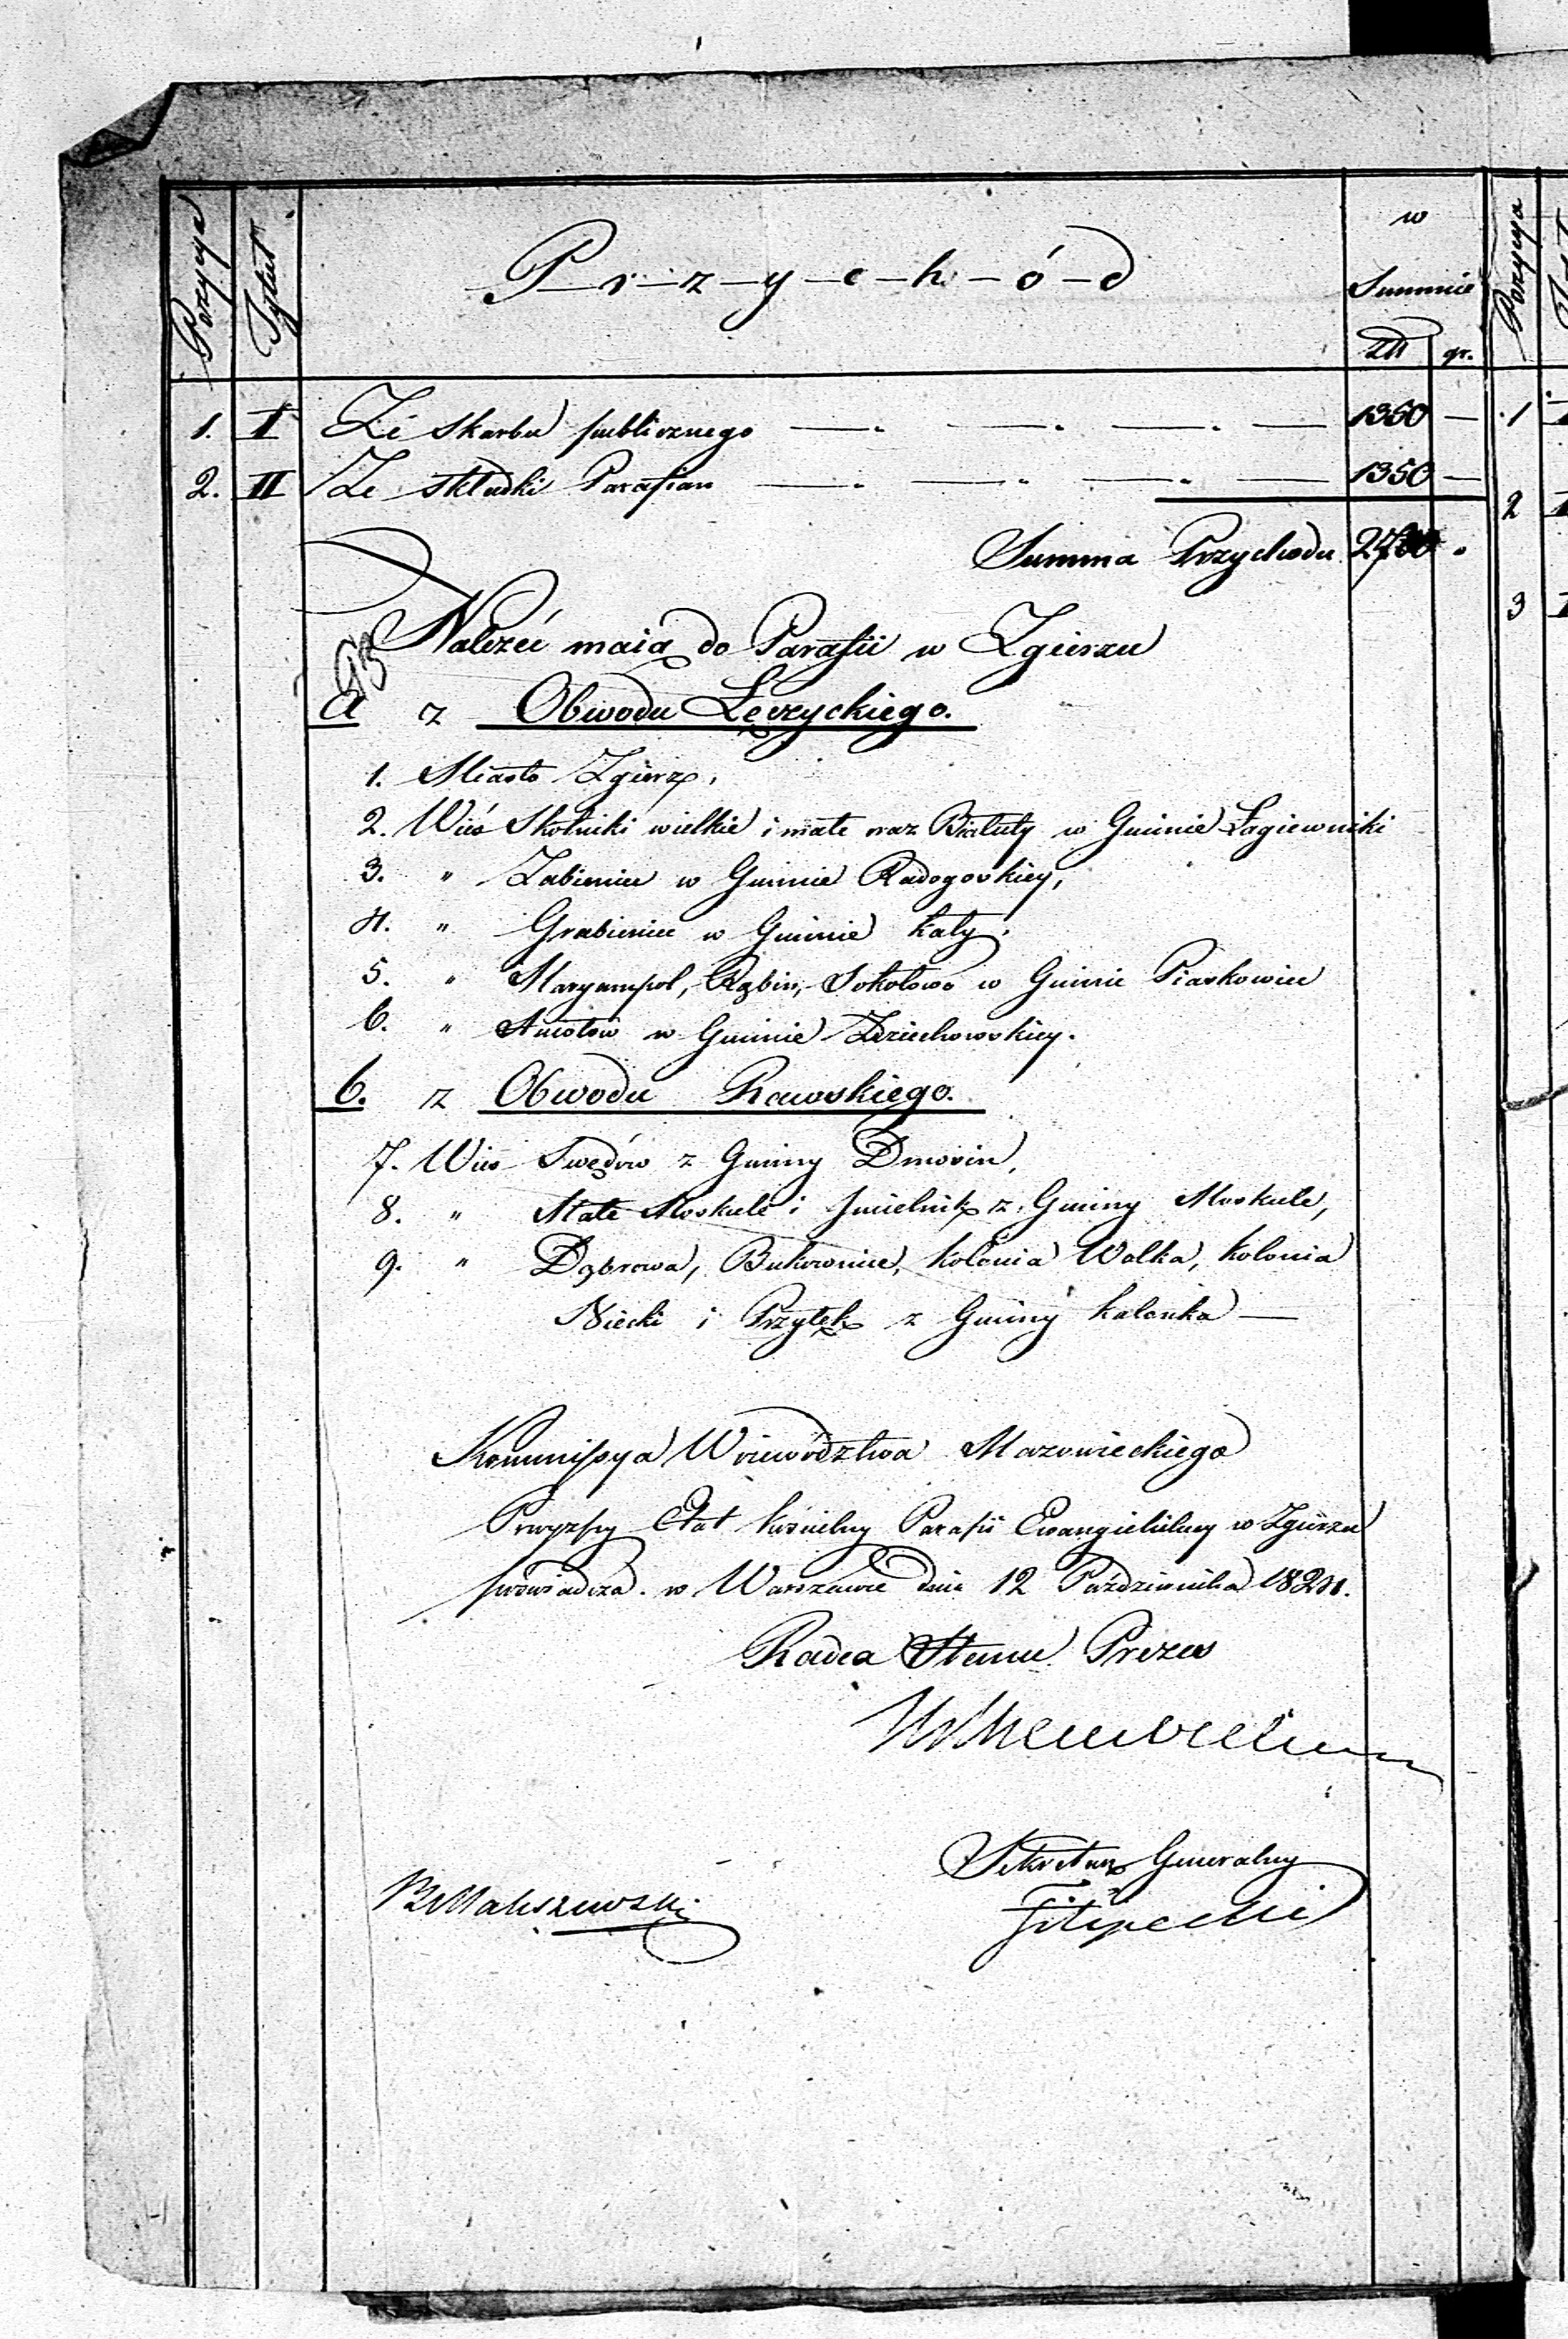 Pozycya Tytuł P-r-z-y-c-h-ó-d w Summie Pozycya
Złł gr.
1. I Ze skarbu publicznego 1350 — 1
2. II Ze składki Parafian 1350 — 2
Summa Przychodu 2700 .
3
Należeć maią do Parafii w Zgierzu
a z Obwodu Łęczyckiego.
1. Miasto Zgierz,
2. Wieś Skotniki wielkie i małe oraz Białuty w Gminie Łagiewniki
3. " Żabieniec w Gminie Radogoskiey,
4. " Grabieniec w Gminie Kały.
5. " Maryampol, Rąbin, Sokołowo w Gminie Piaskowice
6. " w Gminie Dzierchowskiey.
b. z Obwodu Rawskiego.
7. Wieś Swędów z Gminy Dmosin,
8. " Małe Moskule i Jmielnik z Gminy Moskule,
9. " Dąbrowa, Bukowiec, kolonia Wolka, kolonia
Niecki i Przytęk z Gminy Kalonka —
Kommissya Woiewództwa Mazowieckiego
Powyzszy Etat kościelny Parafii Ewangielickiey w Zgierzu
poświadcza. w Warszawie dnia 12 Października 1824.
Radca Stanu Prezes
Sekretarz Generalny
Filipecki